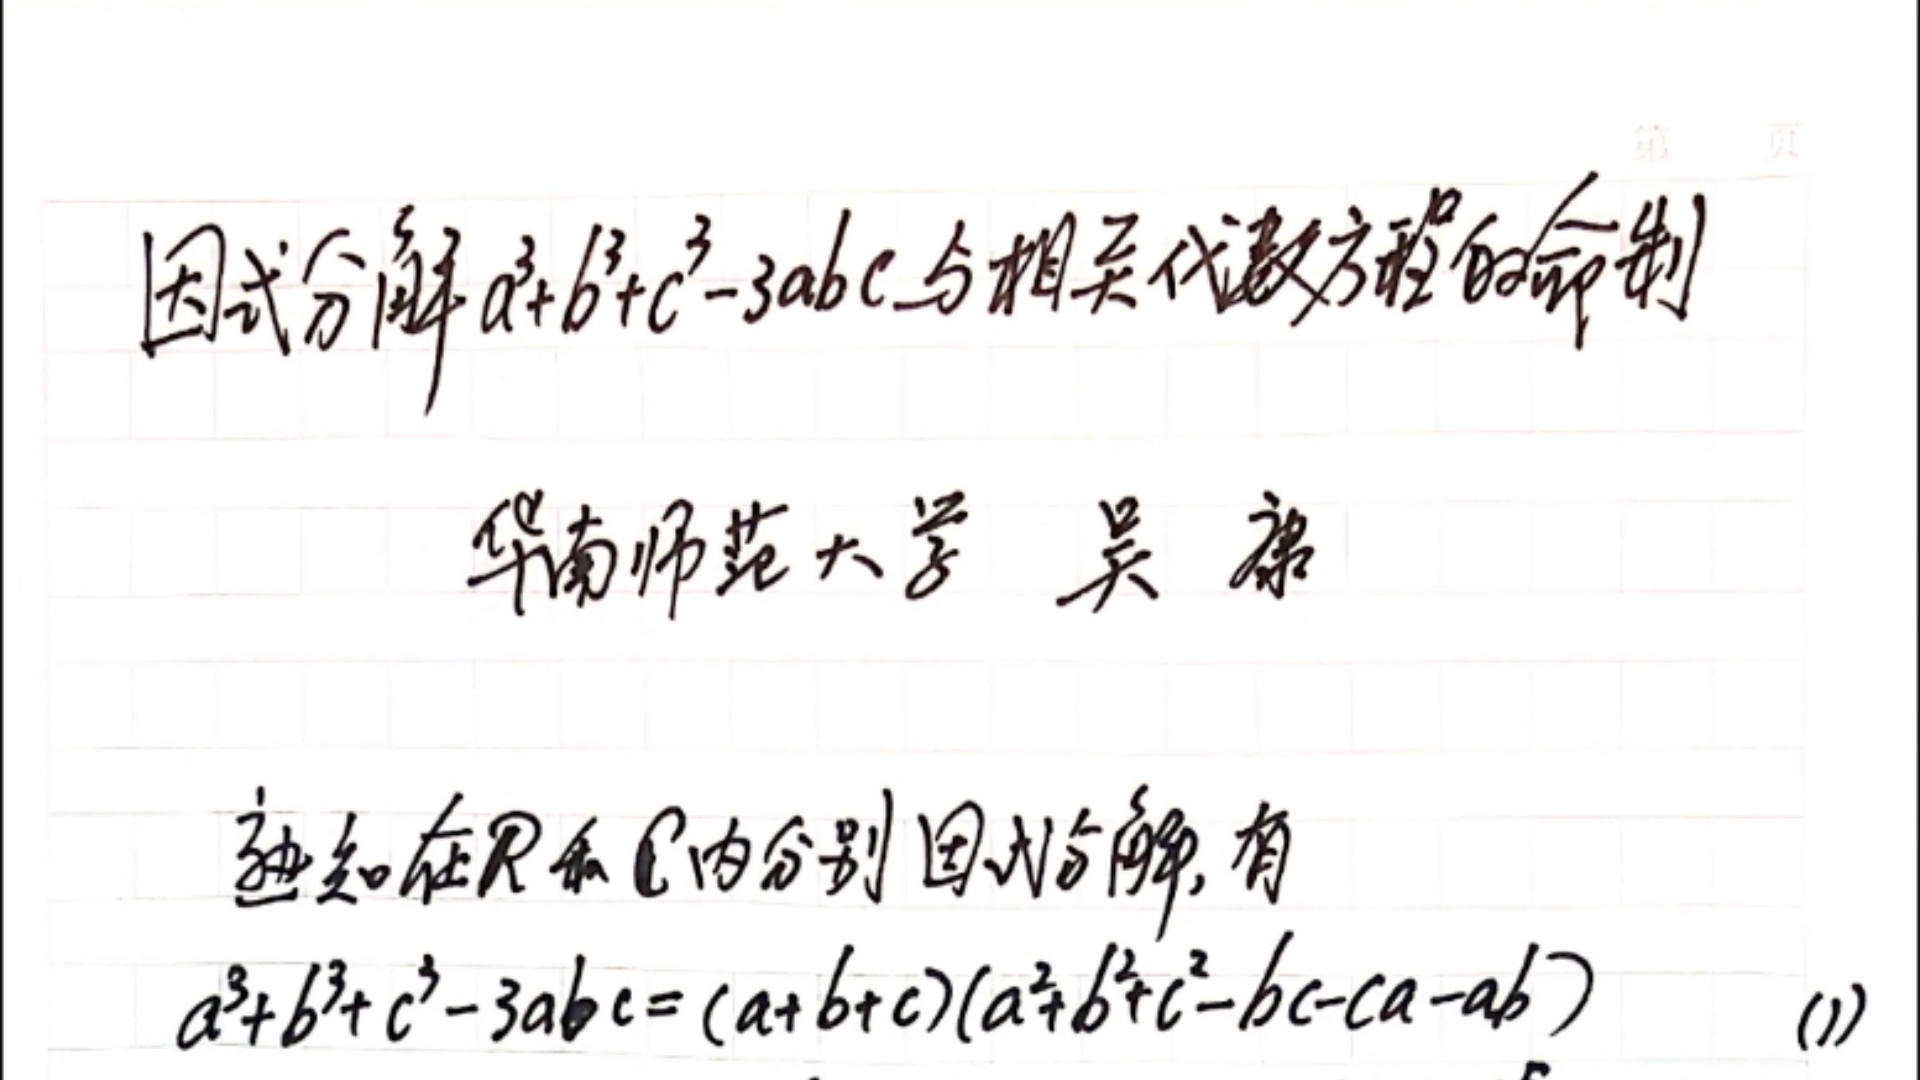 第 页
因式分解a³+b³+c³-3abc与相关代数方程的命制
华南师范大学 吴康
熟知在R和C内分别因式分解,有
a³+b³+c³-3abc=(a+b+c)(a²+b²+c²-bc-ca-ab) (1)